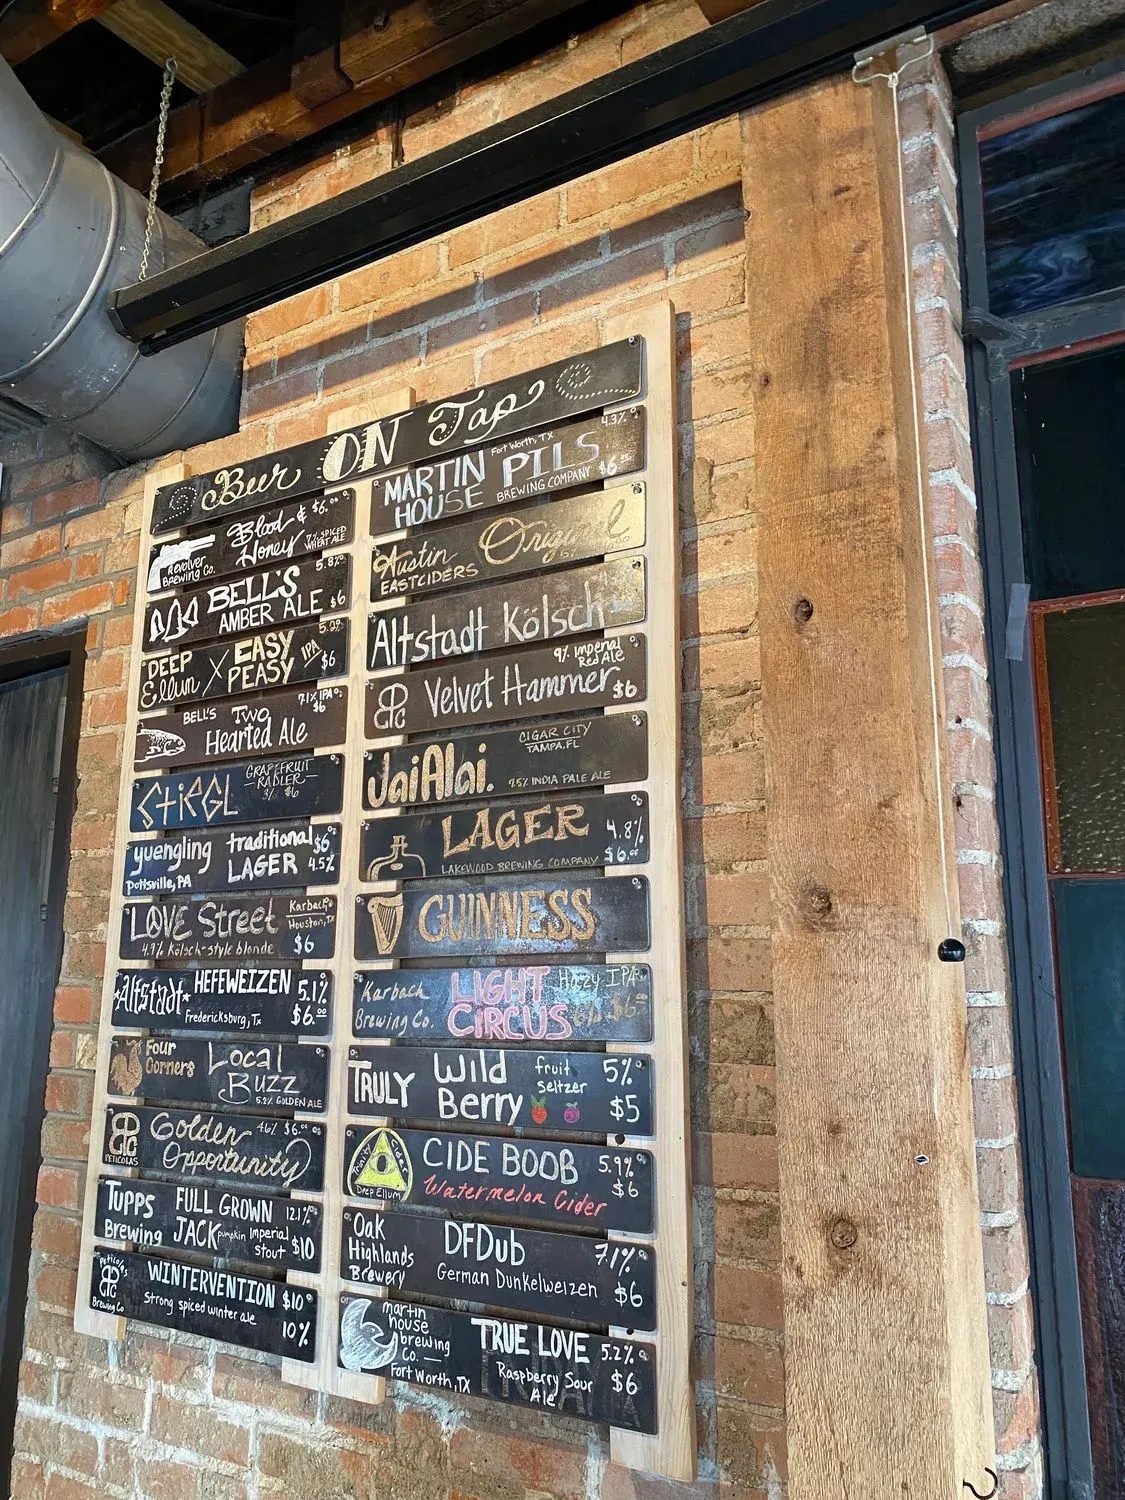 Beer ON Tap
Revolver
Brewing Co.
Blood &
Honey
$6.00
7% SPICED
WHEAT ALE
BELL'S
AMBER ALE
5.8%
$6
DEEP
Ellum
X EASY
PEASY
IPA
$6
BELL'S TWO
Hearted Ale
7.1% IPA
$6
STIEGL
GRAPEFRUIT
RADLER
$6
yuengling
Pottsville, PA
traditional
LAGER
$6
4.5%
LOVE Street
4.9% Kölsch-style blonde
Karbach
Houston, TX
$6
Altstadt
HEFEWEIZEN
Fredericksburg, Tx
5.1%
$6.00
Four
Corners
Local
BUZZ
5.2% GOLDEN ALE
PETICOLAS
Golden
Opportunity
4.6% $6.00
TUPPS
Brewing
FULL GROWN
JACK
pumpkin Imperial
stout
12.1%
$10
Peticolas
Brewing Co
WINTERVENTION
strong spiced winter ale
$10
10%
MARTIN
HOUSE
Fort Worth, TX
PILS
BREWING COMPANY
4.3%
$6
Austin
EASTCIDERS
Original
Altstadt Kölsch
Velvet Hammer
9% Imperial
Red Ale
$6
JaiAlai.
CIGAR CITY
TAMPA, FL
7.5% INDIA PALE ALE
LAGER
LAKEWOOD BREWING COMPANY
4.8%
$6.00
GUINNESS
Karbach
Brewing Co.
LIGHT
CIRCUS
Hazy IPA
$6
TRULY
Wild
Berry
fruit
seltzer
5%
$5
Trinity Cider
Deep Ellum
CIDE BOOB
Watermelon Cider
5.9%
$6
Oak
Highlands
Brewery
DFDub
German Dunkelweizen
7.1%
$6
martin
house
brewing
co.
Fort Worth, TX
TRUE LOVE
Raspberry Sour
Ale
5.2%
$6